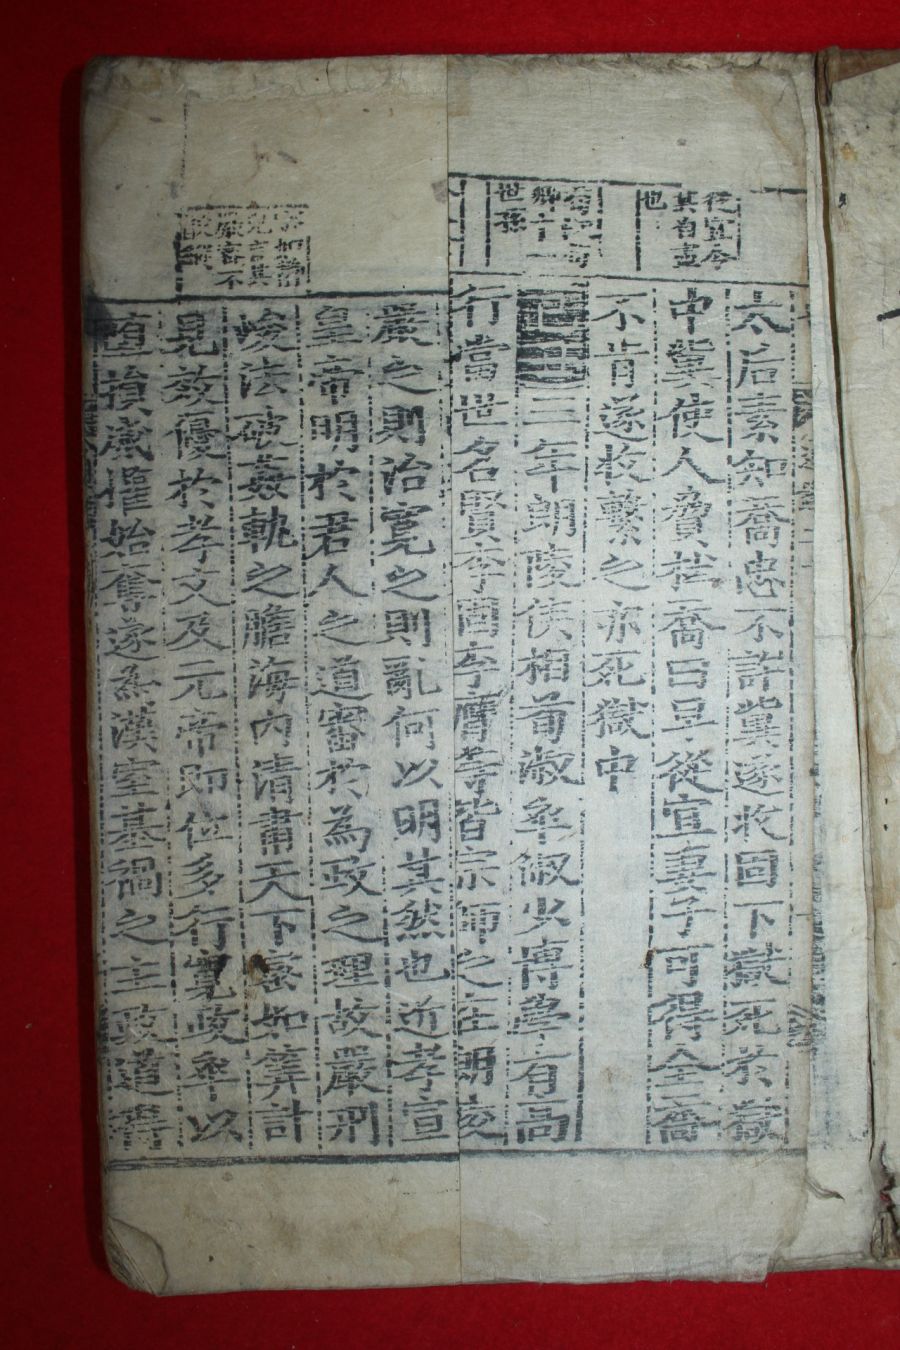 從宜令
其自盡
也
卿十一
世孫
言其
太后素知喬忠不許冀遂收固下獄死於獄
中冀使人脅杜喬曰早從宜妻子可得全喬
不肯遂收繫之亦死獄中
己丑三年朗陵侯相荀淑卒淑少博學有高
行當世名賢李固李膺等皆宗師之在朗陵
嚴之則治寬之則亂何以明其然也近孝宣
皇帝明於君人之道審於為政之理故嚴刑
峻法破姦軌之膽海內清肅天下密如筭計
見效優於孝文及元帝即位多行寬政卒以
墮損威權始奪遂為漢室基禍之主政道得